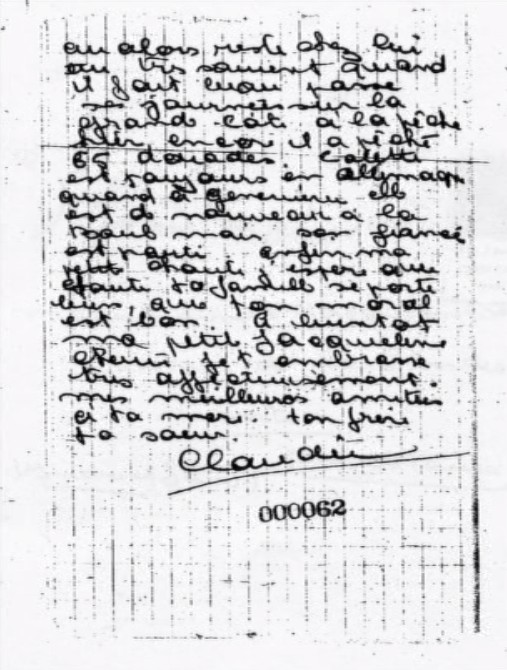 ou alors reste chez lui
ou très souvent quand
il fait beau passe
ses journées sur la
grande côte à la pêche
hier encore il a pêché
66 dorades. Colette
est toujours en Allemagne
quand à Geneviève elle
est de nouveau à la
mais son fiancé
est parti enfin ma
petite espère que
toute ta famille se porte
bien, que ton moral
est bon. A bientot
ma petite Jacqueline
chérie je t embrasse
très affectueusement.
mes meilleures amitiés
a ta mere. ton frère
ta soeur.
Claudie
000062